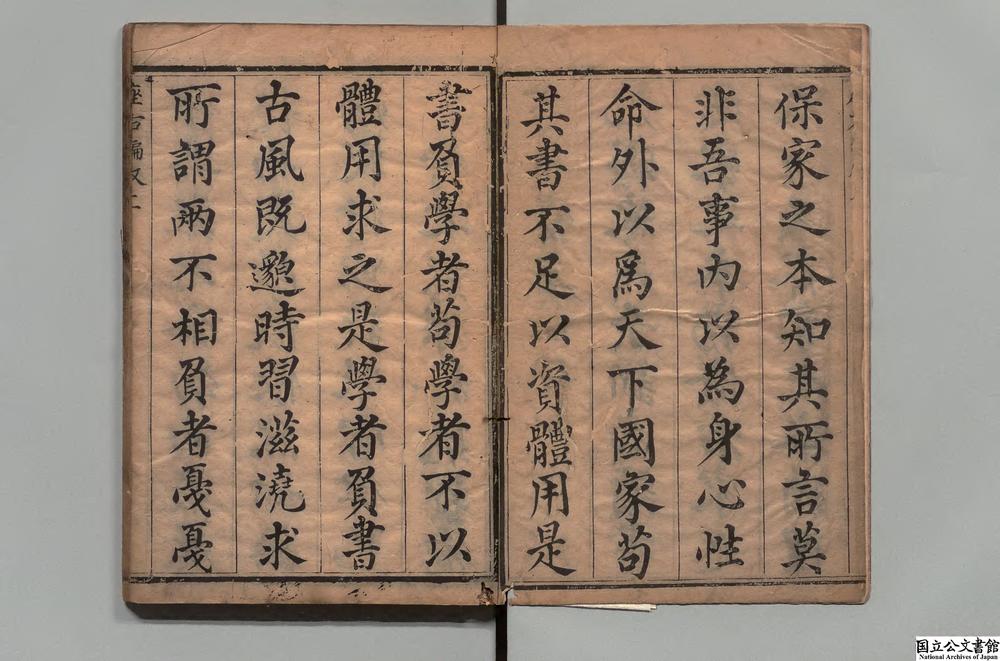 保家之本知其所言莫
非吾事内以為身心性
命外以爲天下國家苟
其書不足以資體用是
書負學者苟學者不以
體用求之是學者負書
古風既邈時習滋澆求
所謂兩不相負者戞戞
座右編叙二
国立公文書館
National Archives of Japan